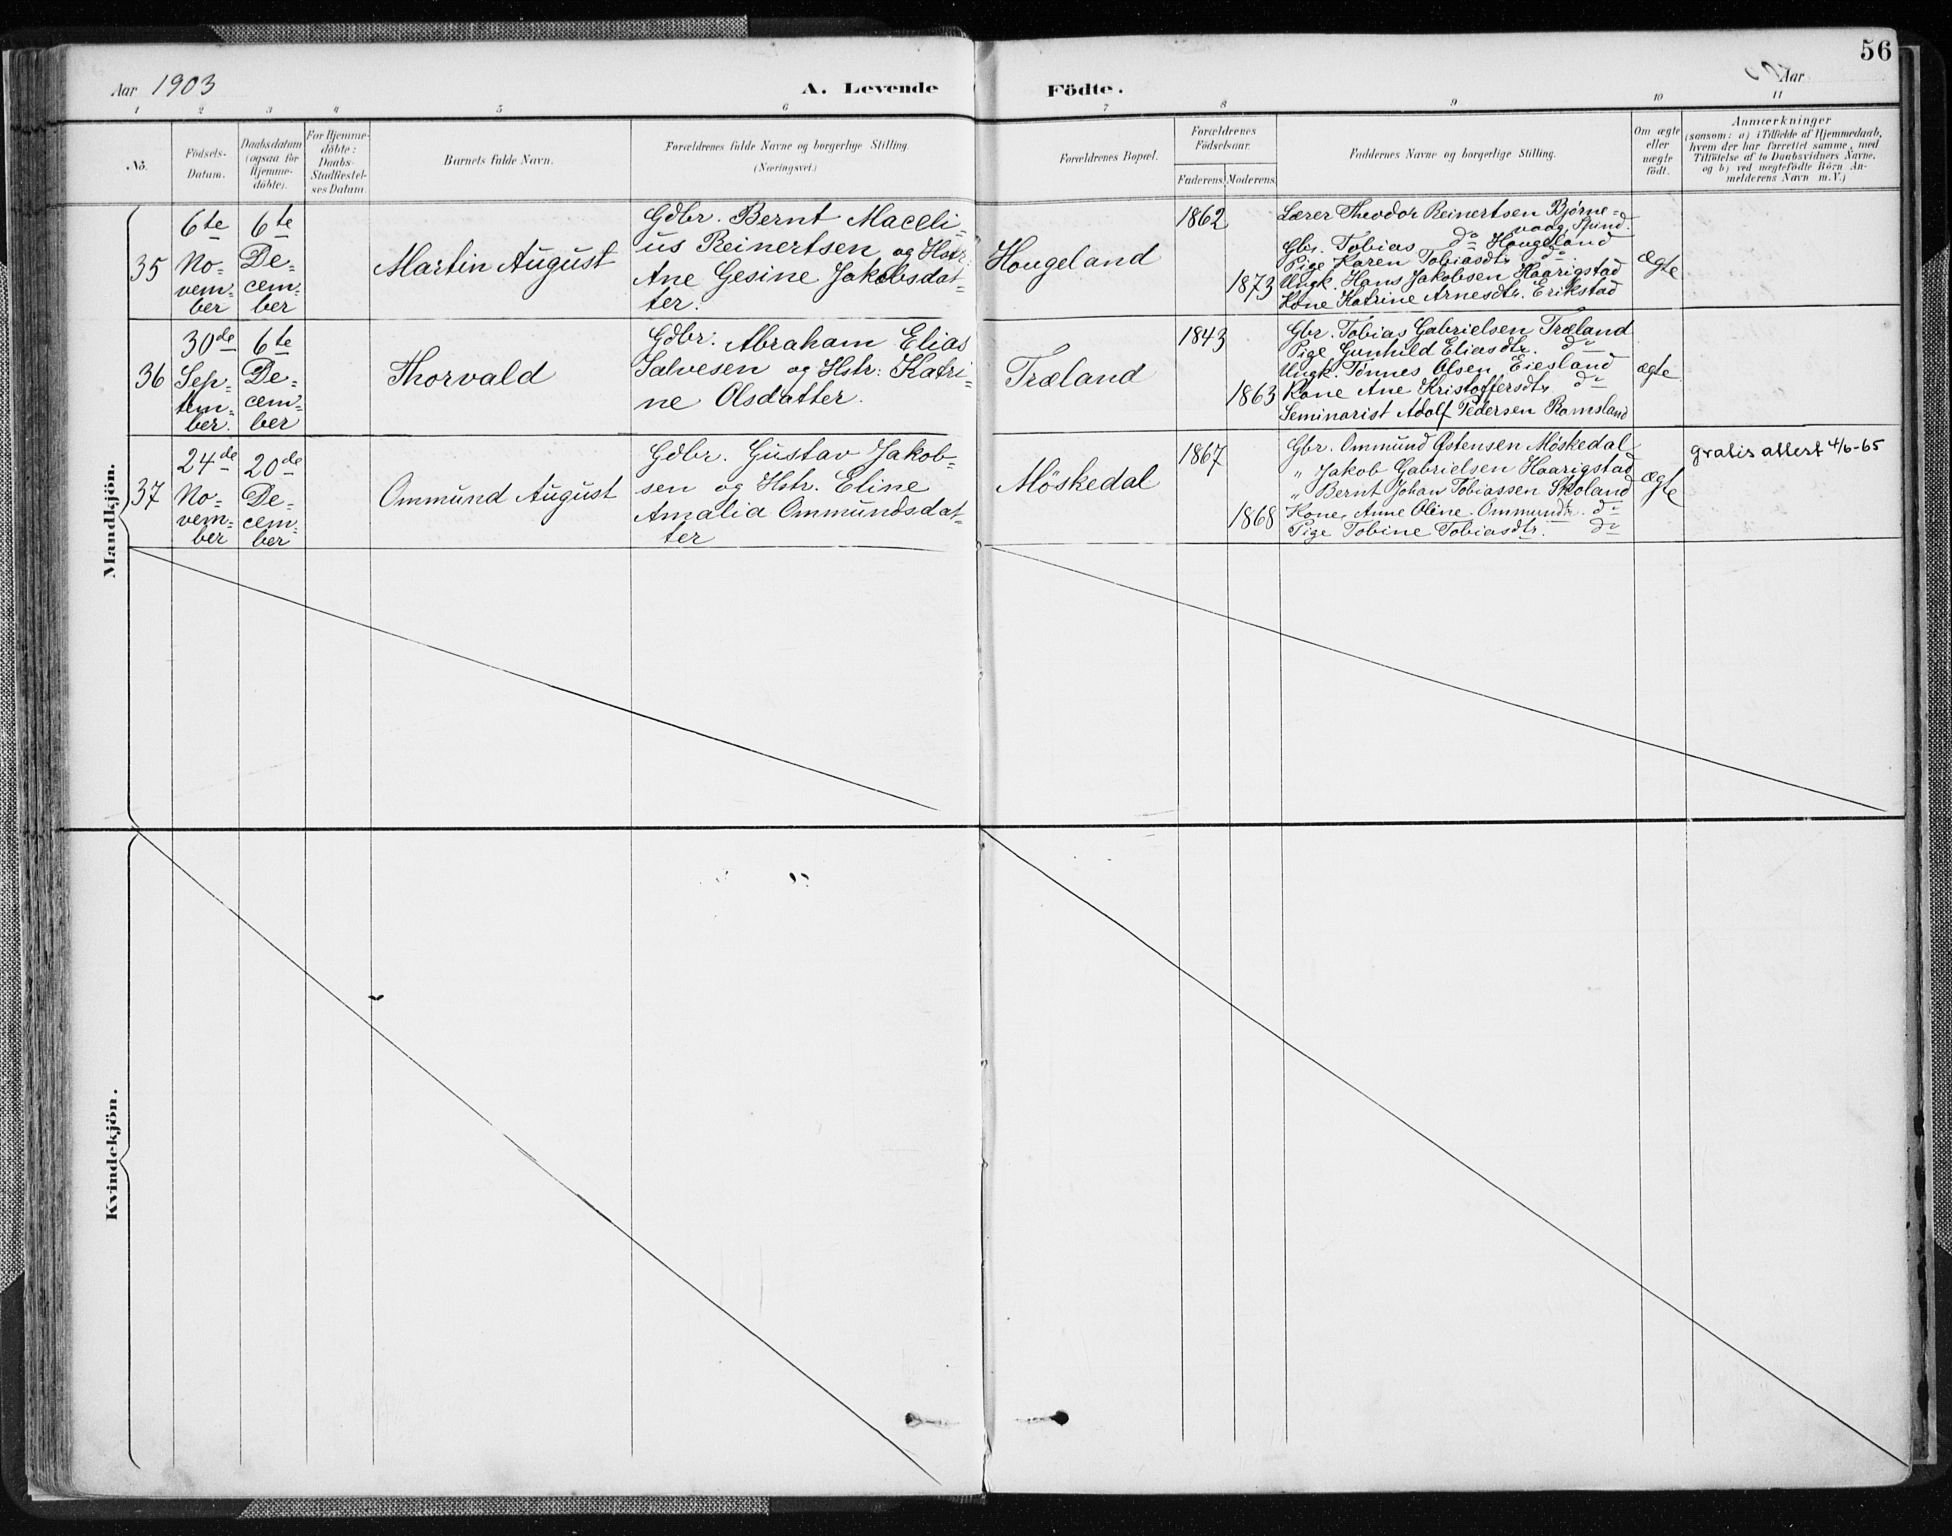 56
Aar 1903
A. Levende
Födte.
Aar
1 2 3 4 5 6 7 8 9 10 11
No.
Födsels-
Datum.
Daabsdatum
(ogsaa for
Hjemme-
döbte).
For Hjemme-
döbte:
Daabs-
Stadfæstel-
ses Datum.
Barnets fulde Navn.
Forældrenes fulde Navne og borgerlige Stilling.
(Næringsvei.)
Forældrenes Bopæl.
Forældrenes
Födselsaar.
Faderens. Moderens.
Faddernes Navne og borgerlige Stilling.
Om ægte
eller
uægte
födt.
Anmærkninger
(saasom: a) i Tilfælde af Hjemmedaab,
hvem der har forrettet samme, med
Tilföielse af to Daabsvidners Navne,
og b) ved uægtefödte Börn An-
melderens Navn m. V.)
Mandkjön.
35
6te
No-
vem-
ber
6te
De-
cem-
ber
Martin August
Gdbr. Bernt Maceli-
us Reinertsen og Hstr.
Ane Gesine Jakobsdat-
ter.
Hougeland
1862
1873
Lærer Theodor Reinertsen Bjørne-
vaag, Spind.
Gbr. Tobias do Hougeland
Pige Karen Tobiasdtr do
Ungk. Hans Jakobsen Haarigstad
Kone Katrine Arnesdtr. Erikstad
ægte
36
30de
Sep-
tem-
ber.
6te
De-
cem-
ber
Thorvald
Gdbr: Abraham Elias
Salvesen og Hstr: Katri-
ne Olsdatter.
Træland
1843
1863
Gbr. Tobias Gabrielsen Træland
Pige Gunhild Eliasdtr. do
Ungk. Tønnes Olsen Eiesland
Kone Ane Kristoffersdtr do
Seminarist Adolf Pedersen Romsland
ægte
37
24de
No-
vem-
ber
20de
De-
cem-
ber
Ommund August
Gdbr. Gustav Jakob-
sen og Hstr. Eline
Amalia Ommundsdat-
ter
Møskedal
1867
1868
Gbr. Ommund Østensen Møskedal
" Jakob Gabrielsen Haarigstad
" Bernt Johan Tobiassen Skoland
Kone, Anne Oline Ommundtr. do
Pige Tobine Tobiasdtr. do
ægte
gratis attest 4/6-65
Kvindekjön.